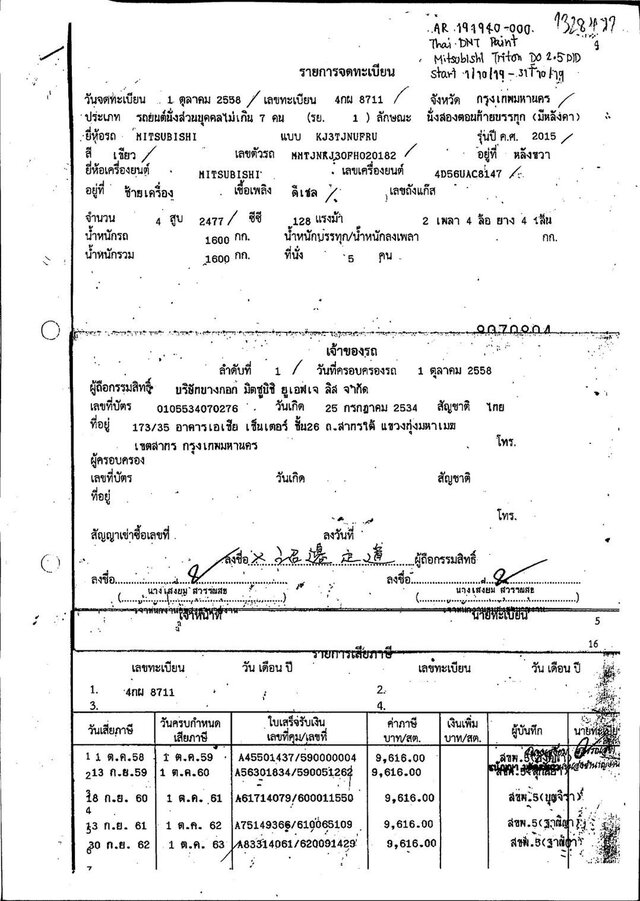 AR 191940-000.
Thai DNT Paint
Mitsubishi Triton DC 2.5 DID
Start 1/10/19 - 31/10/19
รายการจดทะเบียน
วันจดทะเบียน 1 ตุลาคม 2558 เลขทะเบียน 4กผ 8711 จังหวัด กรุงเทพมหานคร
ประเภท รถยนต์นั่งส่วนบุคคลไม่เกิน 7 คน (รย. 1) ลักษณะ นั่งสองตอนท้ายบรรทุก (มีหลังคา)
ยี่ห้อรถ MITSUBISHI แบบ KJ3TJNUFRU รุ่นปี ค.ศ. 2015
สี เขียว เลขตัวรถ MMTJNKJ30FH020182 อยู่ที่ หลังขวา
ยี่ห้อเครื่องยนต์ MITSUBISHI เลขเครื่องยนต์ 4D56UAC8147
อยู่ที่ ซ้ายเครื่อง เชื้อเพลิง ดีเซล เลขถังแก๊ส
จำนวน 4 สูบ 2477 ซีซี 128 แรงม้า 2 เพลา 4 ล้อ ยาง 4 เส้น
น้ำหนักรถ 1600 กก. น้ำหนักบรรทุก/น้ำหนักลงเพลา กก.
น้ำหนักรวม 1600 กก. ที่นั่ง 5 คน
เจ้าของรถ
ลำดับที่ 1 วันที่ครอบครองรถ 1 ตุลาคม 2558
ผู้ถือกรรมสิทธิ์ บริษัทบางกอก มิตซูบิชิ ยูเอฟเจ ลิส จำกัด
เลขที่บัตร 0105534070276 วันเกิด 25 กรกฎาคม 2534 สัญชาติ ไทย
ที่อยู่ 173/35 อาคารเอเชีย เซ็นเตอร์ ชั้น26 ถ.สาทรใต้ แขวงทุ่งมหาเมฆ
เขตสาทร กรุงเทพมหานคร โทร.
ผู้ครอบครอง
เลขที่บัตร วันเกิด สัญชาติ
ที่อยู่
โทร.
สัญญาเช่าซื้อเลขที่ ลงวันที่
ลงชื่อ ผู้ถือกรรมสิทธิ์
ลงชื่อ ลงชื่อ
เจ้าหน้าที่ นายทะเบียน
5
16
รายการเสียภาษี
เลขทะเบียน วัน เดือน ปี เลขทะเบียน วัน เดือน ปี
1. 4กผ 8711 2.
3. 4.
วันเสียภาษี วันครบกำหนดเสียภาษี ใบเสร็จรับเงิน เลขที่คุม/เลขที่ ค่าภาษี บาท/สต. เงินเพิ่ม บาท/สต. ผู้บันทึก
1 1 ต.ค.58 1 ต.ค.59 A45501437/590000004 9,616.00
2 13 ก.ย.59 1 ต.ค.60 A56301834/590051262 9,616.00
18 ก.ย. 60 1 ต.ค. 61 A61714079/600011550 9,616.00
13 ก.ย. 61 1 ต.ค. 62 A75149366/610065109 9,616.00
30 ก.ย. 62 1 ต.ค. 63 A83314061/620091429 9,616.00